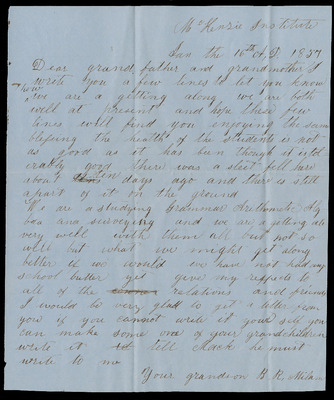 McKenzie Institute
Jan the 16th A.D. 1857
Dear grand father and grandmother I
write you a few lines to let you know
how
we are getting along we are both
well at present and hope these few
lines will find you enjoying the same
blessing the health of the students is not
as good as it has bin though it is tole
rably good there was a sleet fell here
about ten days ago and there is still
apart of it on the ground
We are a studying Grammar Arithmetic Alg
bra and surveying and we are a getting along
very well with them all but not so
well but what we might get along
better if we would we have not had any
school butter yet give my respects to
all of the relations and friends
I would be very glad to get a letter from
you if you cannot write it your self you
can make some one of your grandchildren
write it tell Mack he must
write to me
Your grandson